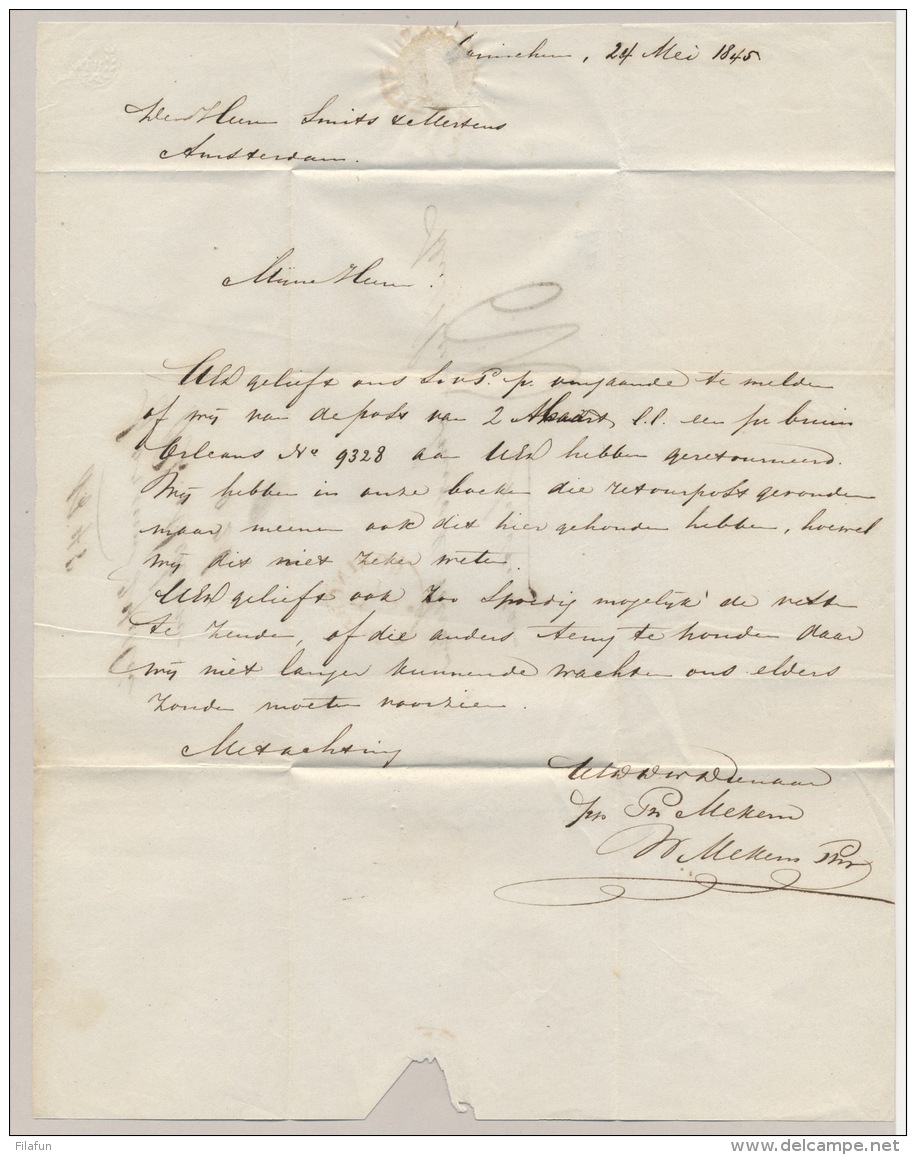 Gorinchem, 24 Mei 1845
Den Heeren Smits & Mertens
Amsterdam.
Mijne Heeren!
UEd gelieft ons p. omgaande te melden
of wij van de post van 2 Maart l.l. een ps bruin
Orleans No 9328 aan UEd hebben geretourneerd.
Wij hebben in onze boeken die retourpost gevonden
maar meenen ook dit hier gehouden hebben, hoewel
wij dit niet zeker weten.
UEd gelieft ook zoo spoedig mogelijk de
te zenden, of die anders terug te houden daar
wij niet langer kunnende wachten ons elders
zouden moeten voorzien.
Met achting
UEd Dw Dienaar
Mekern
W Mekern
Filafun
www.delcampe.net